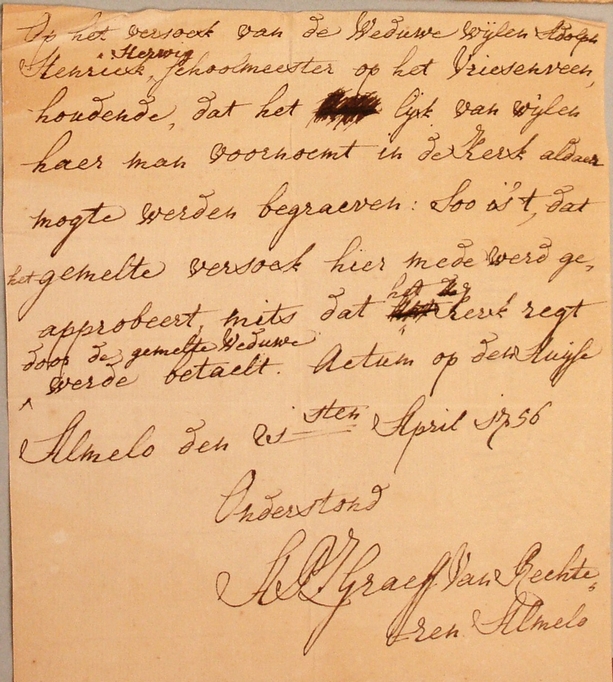 Op het versoek van de Weduwe wijlen Adolph
Herwig
Henrick, schoolmeester op het Vriesenveen,
houdende, dat het lijk van wijlen
haer man voornoemt in de Kerk aldaer
mogte werden begraeven: Soo is't, dat
het gemelte versoek hier mede werd ge,
het
approbeert, mits dat Kerk regt
door de gemelte Weduwe
werde betaelt. Actum op den Huijse
Almelo den 21 sten April 1756
Onderstond
Graeff Van Rechte,
ren Almelo